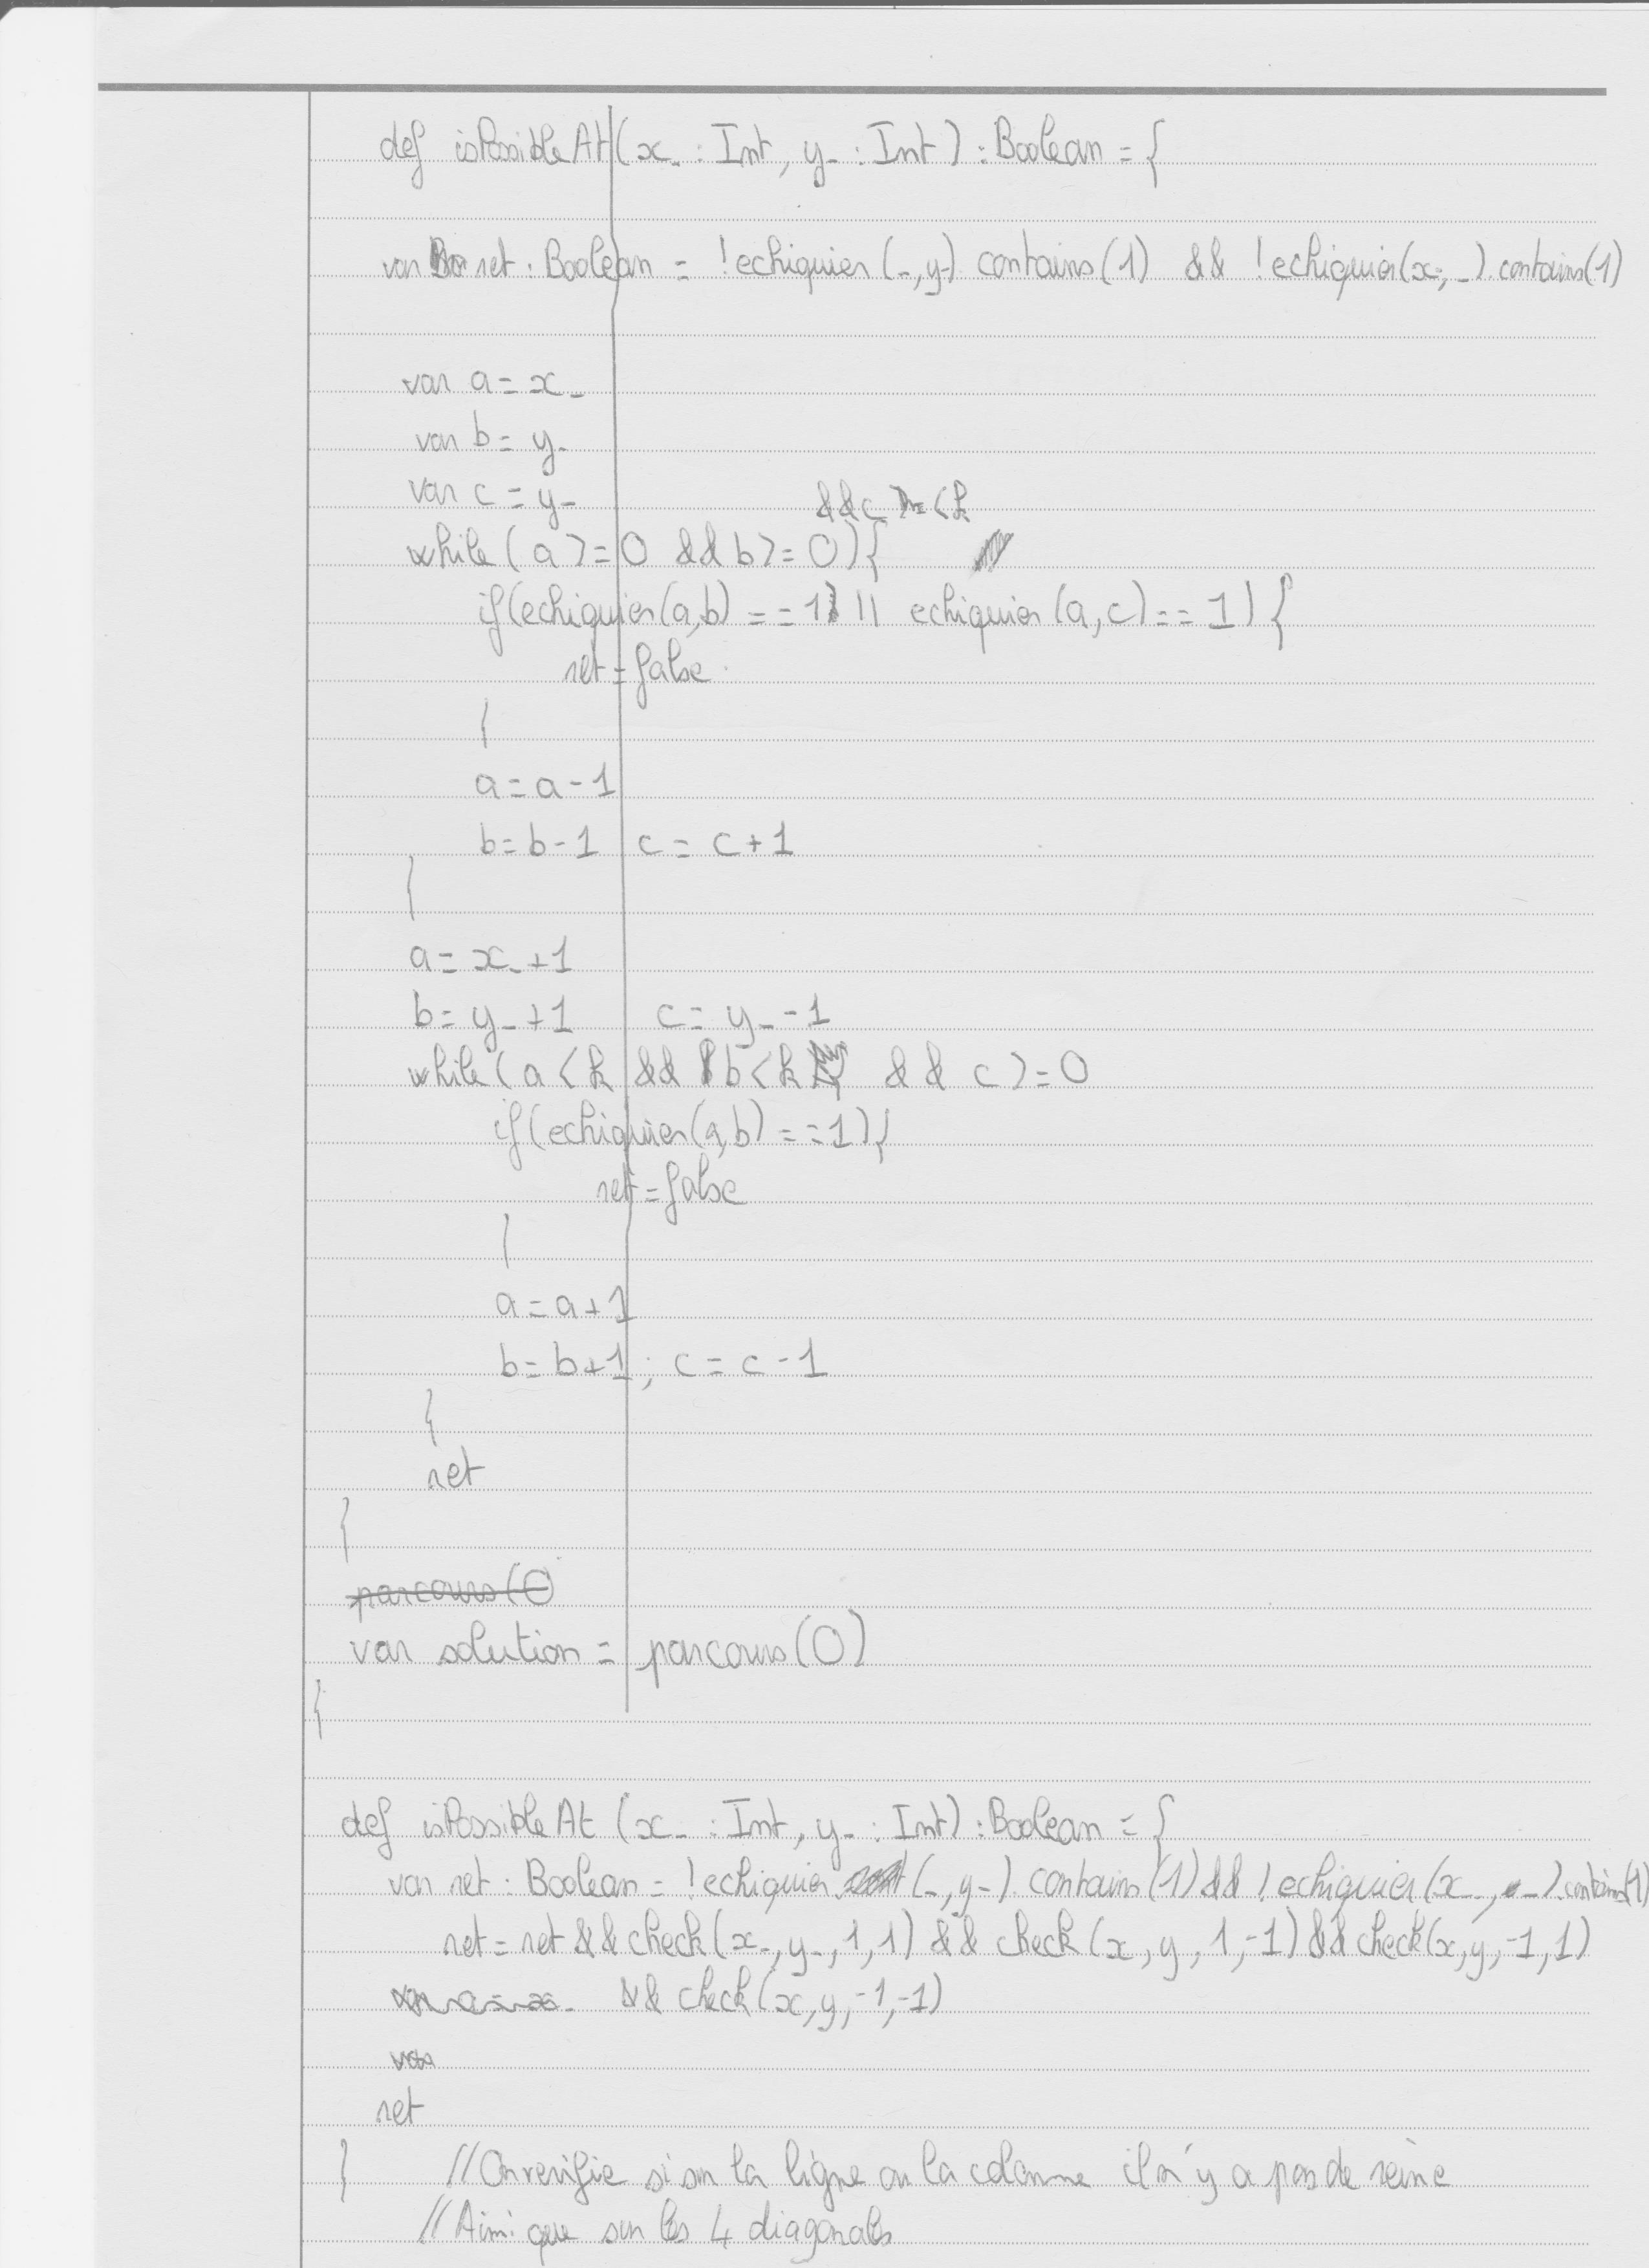 def isPossibleAt (x_ : Int, y_ : Int) : Boolean = {
var ret : Boolean = !echiquier(_,y_) contains(1) && !echiquier(x_, _).contains(1)
var a = x_
var b = y_
var c = y_
&& c < k
while (a >= 0 && b >= 0) {
if(echiquier(a,b) == 1 || echiquier(a,c) == 1) {
ret = false
}
a = a - 1
b = b - 1 c = c + 1
}
a = x_ + 1
b = y_ + 1 c = y_ - 1
while (a < k && b < k && c >= 0
if(echiquier(a,b) == 1){
ret = false
}
a = a + 1
b = b + 1 ; c = c - 1
}
ret
}
parcours(0
var solution = parcours(0)
}
def isPossibleAt (x_ : Int, y_ : Int) : Boolean = {
var ret : Boolean = !echiquier (_,y_). contains(1) && !echiquier(x_, _).contains(1)
ret = ret && check(x_,y_,1,1) && check(x,y,1,-1) && check(x,y,-1,1)
&& check(x,y,-1,-1)
ret
} //On verifie si sur la ligne ou la colonne il n'y a pas de reine
//Ainsi que sur les 4 diagonales